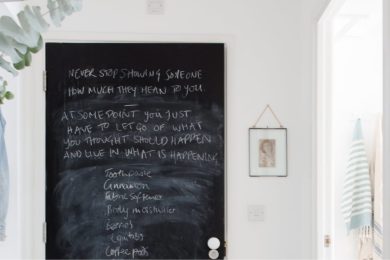 NEVER STOP SHOWING SOMEONE
HOW MUCH THEY MEAN TO YOU.
AT SOME POINT YOU JUST
HAVE TO LET GO OF WHAT
YOU THOUGHT SHOULD HAPPEN
AND LIVE IN WHAT IS HAPPENING
Toothpaste
Cinnamon
Fabric Softener
Body moisturiser
Berries
Coffee pods